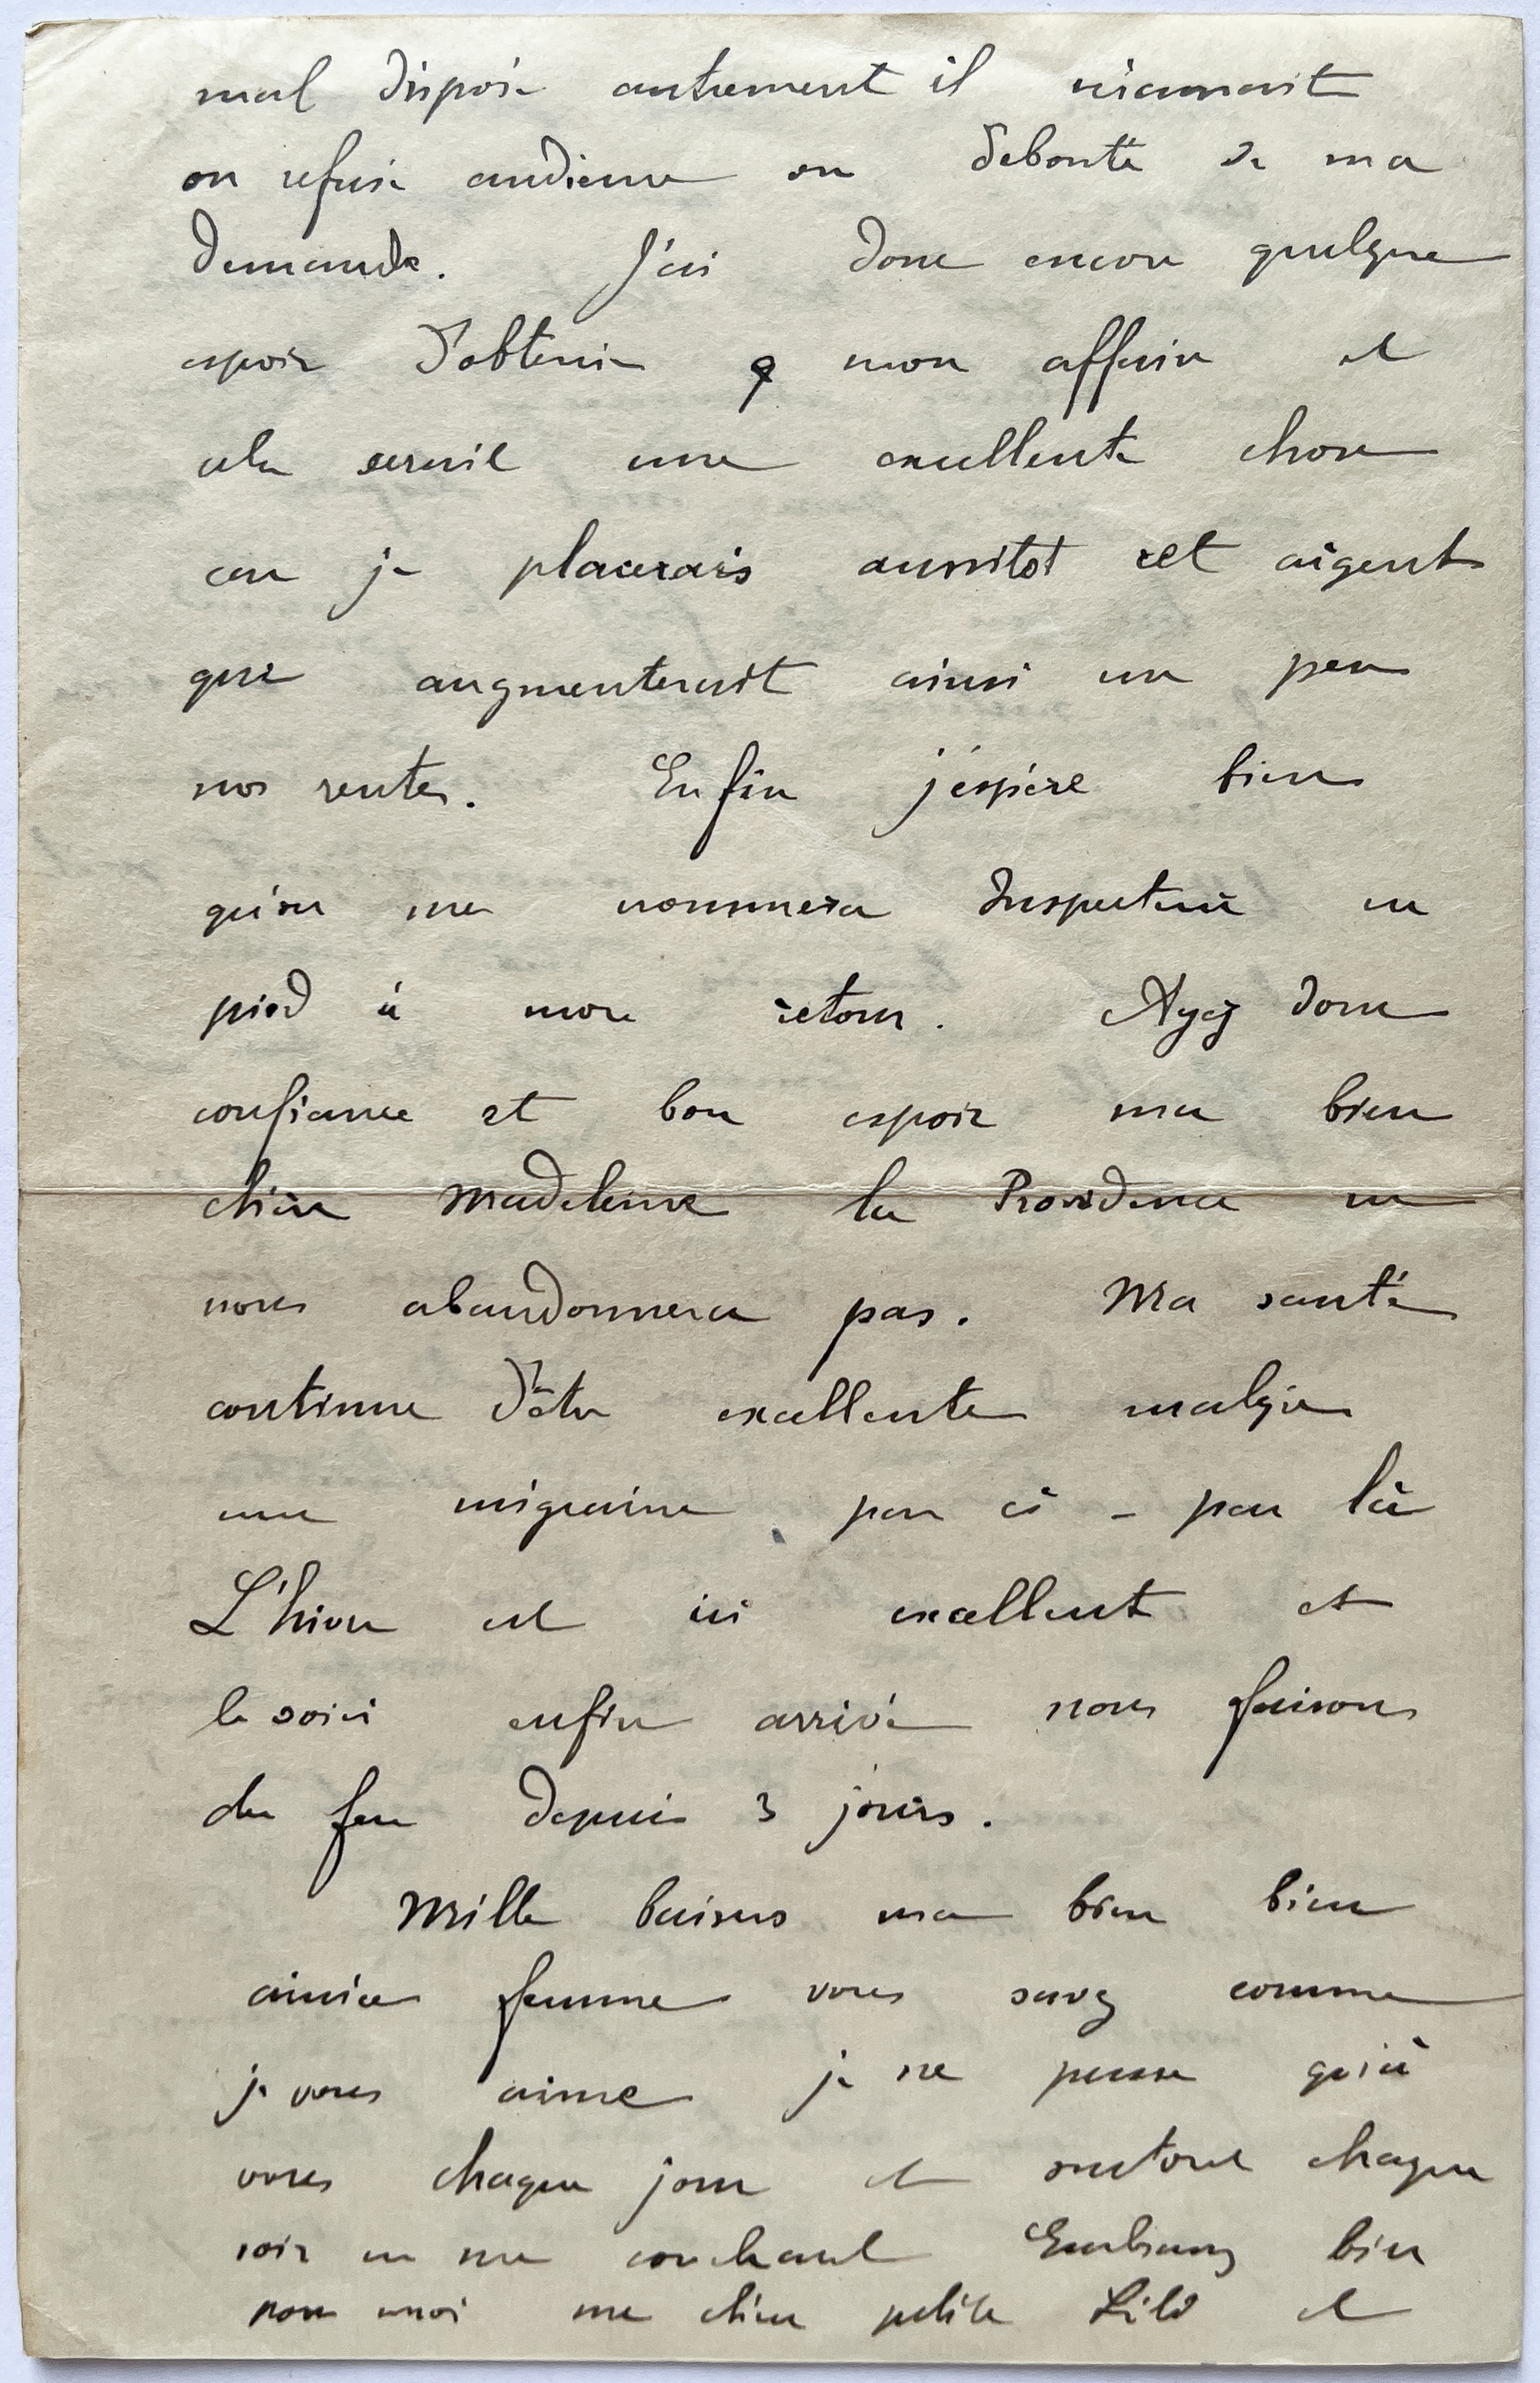 mal disposé autrement il
ou refusé audience ou débouté de ma
demande. J'ai donc encore quelque
espoir d'obtenir mon affaire et
cela serait une excellente chose
car je placerais aussitot cet argent
qui augmenterait ainsi un peu
nos rentes. Enfin j'éspère bien
qu'on me nommera Inspecteur en
pied à mon retour. Ayez donc
confiance et bon espoir ma bien
chère Madeleine la Providence ne
nous abandonnera pas. Ma santé
continue d'être excellente malgré
une migraine par ci - par là
L'hiver est ici excellent et
le soir enfin arrivé nous faisons
du feu depuis 3 jours.
Mille baisers ma bien bien
aimée femme vous savez comme
je vous aime je ne pense qu'à
vous chaque jour et surtout chaque
soir en me couchant Embrassez bien
pour moi ma chère petite Lili et